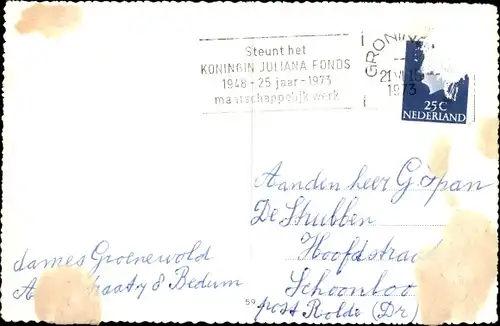 Steunt het
KONINGIN JULIANA FONDS
1948 - 25 jaar - 1973
maatschappelijk werk
GRONIN
1973
25C
NEDERLAND
Aan den heer G Span
De Strubben
Hoofdstraat
Schoonloo
post Rolde (Dr)
dames Groenewold
8 Bedum
59